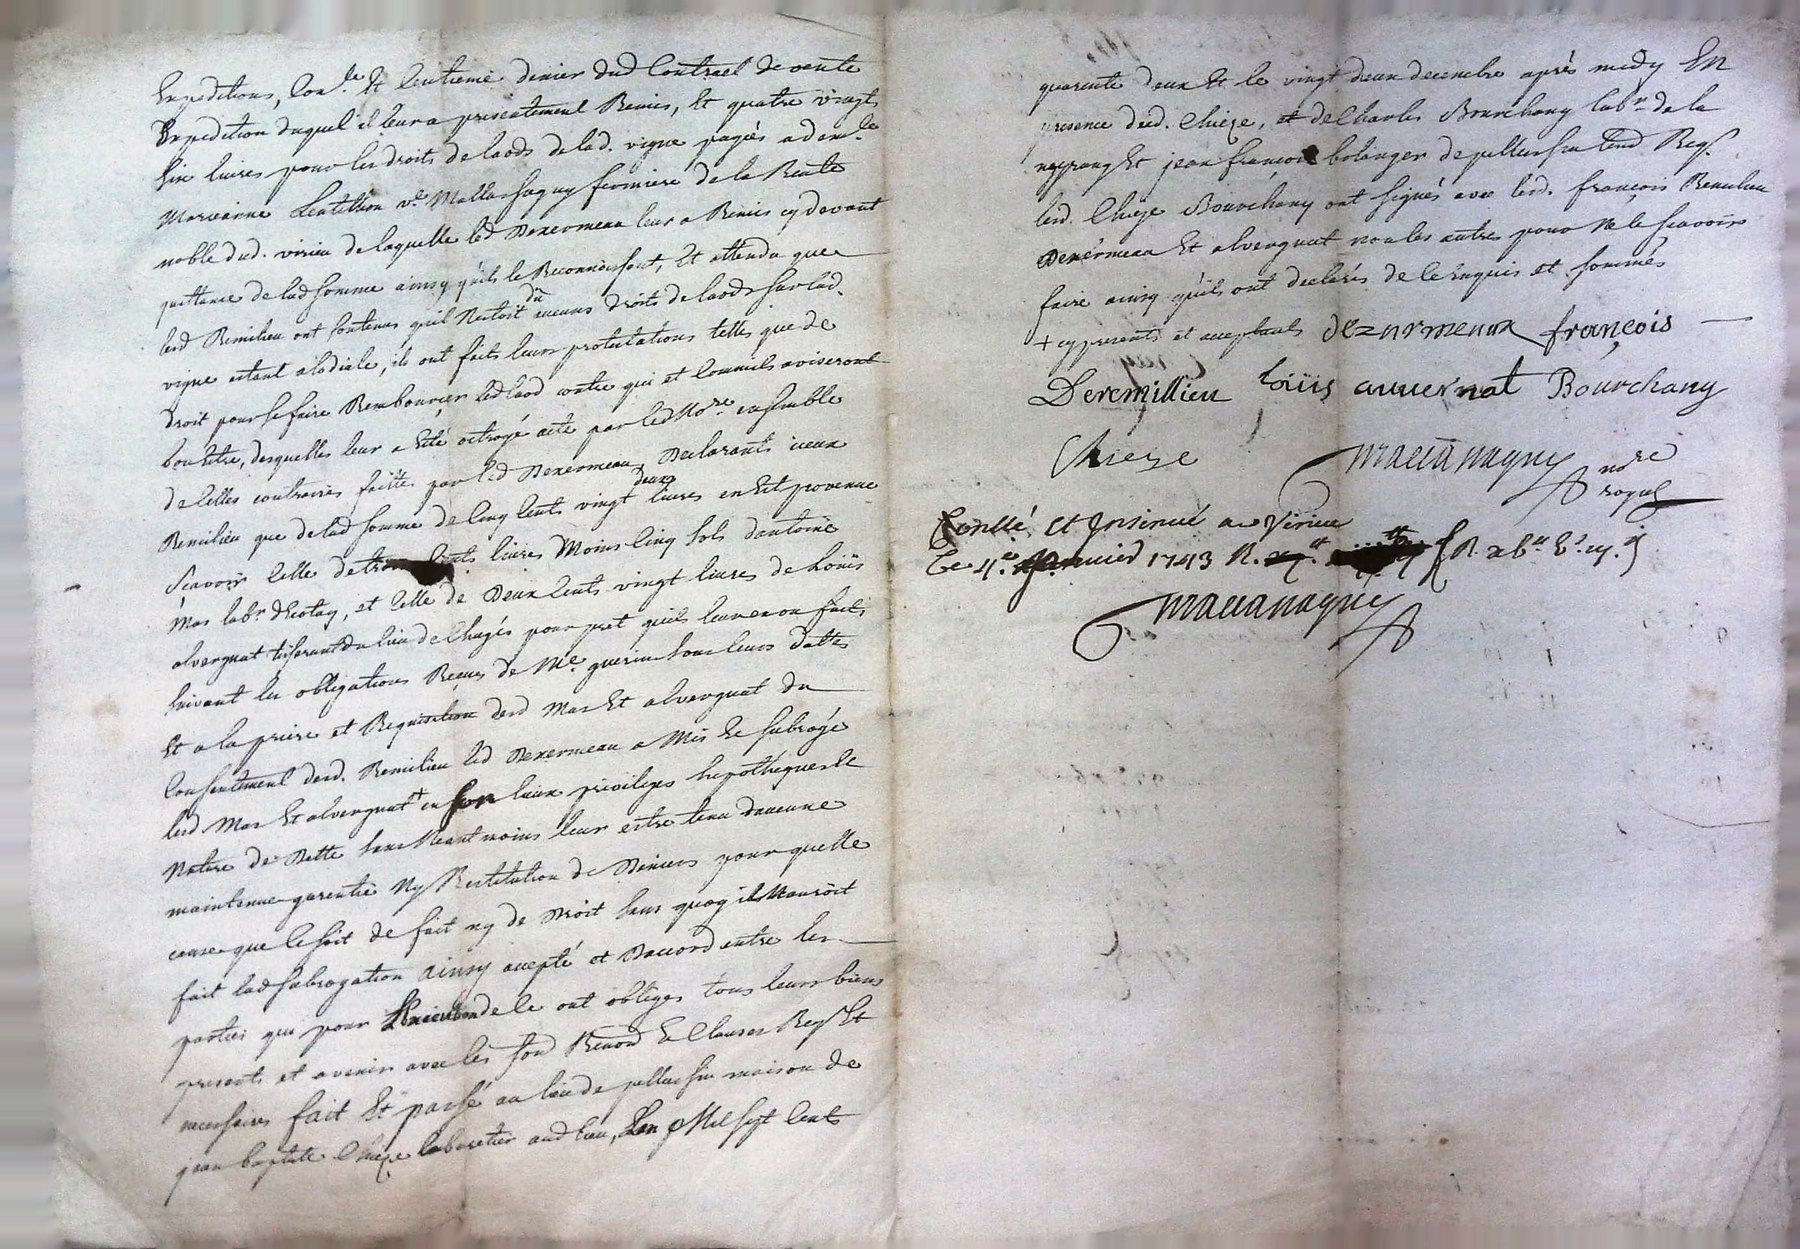 Expeditions, Con.le Et Centieme denier dud Contract de vente
Expedition duquel il leur a presentement Remis, Et quatre vingts
six livres pour les droits de laods de lad. vigne payés a dam.le
Marianne Lentillon v.e Mallassagny fermiere de la Rente
noble dud. virieu de laquelle led Dezermeau leur a Remis cy devant
quittance de lad somme ainsy qu'ils le Reconnoissent, Et attendu que
lesd Remilieu ont soutenus qu'il N'estoit dû aucuns droits de laods sur lad.
vigne estant alodiale, ils ont faits leurs protestations telles que de
droit pour se faire Rembourcer led laod contre qui et Comme ils aviseront
bon Estre, desquelles leur a Eté octroyé acte par led No.re ensemble
de Celles contraires faitte par led Dezermeau Declarants iceux
Remilieu que de lad somme de Cinq Cents vingt deux livres en Est provenue
Scavoir Celle de trois Cents livres Moins Cinq sols d'antoine
Mas lab.r d'Ecotay, et Celle de Deux Cents vingt livres de Loüis
alvergnat tisserant du lieu de Chuyés pour pret qu'ils leur en on faits
suivant les obligations Reçues de M.e guerin sous leurs dattes
Et a la priere et Requisition desd Mas Et alvergnat du
Consentement desd. Remilieu led Dezermeau a Mis Et subrogé
lesd Mas Et alvergnat + en son lieux privileges hypothéques Et
Nature de Dette sans Neantmoins leur estre tenu d'aucune
maintenue garentie Ny Restitution de Deniers pour quelle
cause que Ce soit de fait ny de Droit sans quoy il N'auroit
fait lad subrogation ainsy accepté et D'accord entre les
parties qui pour L'Execution de Ce ont obligés tous leurs biens
presents et avenir avec les soud Renon Et Clauses Req.s Et
necessaires fait Et passé au lieu de pellussin maison de
jean baptiste Chieze Cabaretier aud lieu, L'an Mil sept Cents
quarente deux Et le vingt deux decembre après midy En
presence dud. Chieze, et de Charles Bourchany lab.r de la
Et jean françois bolanger de pellussin tend Req.s
lesd. Chieze Bourchany ont signés avec lesd. françois Remilieu
Dezermeau Et alvergnat non les autres pour Ne le scavoir
faire ainsy qu'ils ont declarés de Ce Enquis et sommés
+ cy presents et acceptants dezarmeaux françois
Deremillieu loüis auvernat Bourchany
Chieze Maccanagny no.re royal
Conllé Et Insinué a Virieu
Le 4.e janvier 1743 R.
Maccanagny